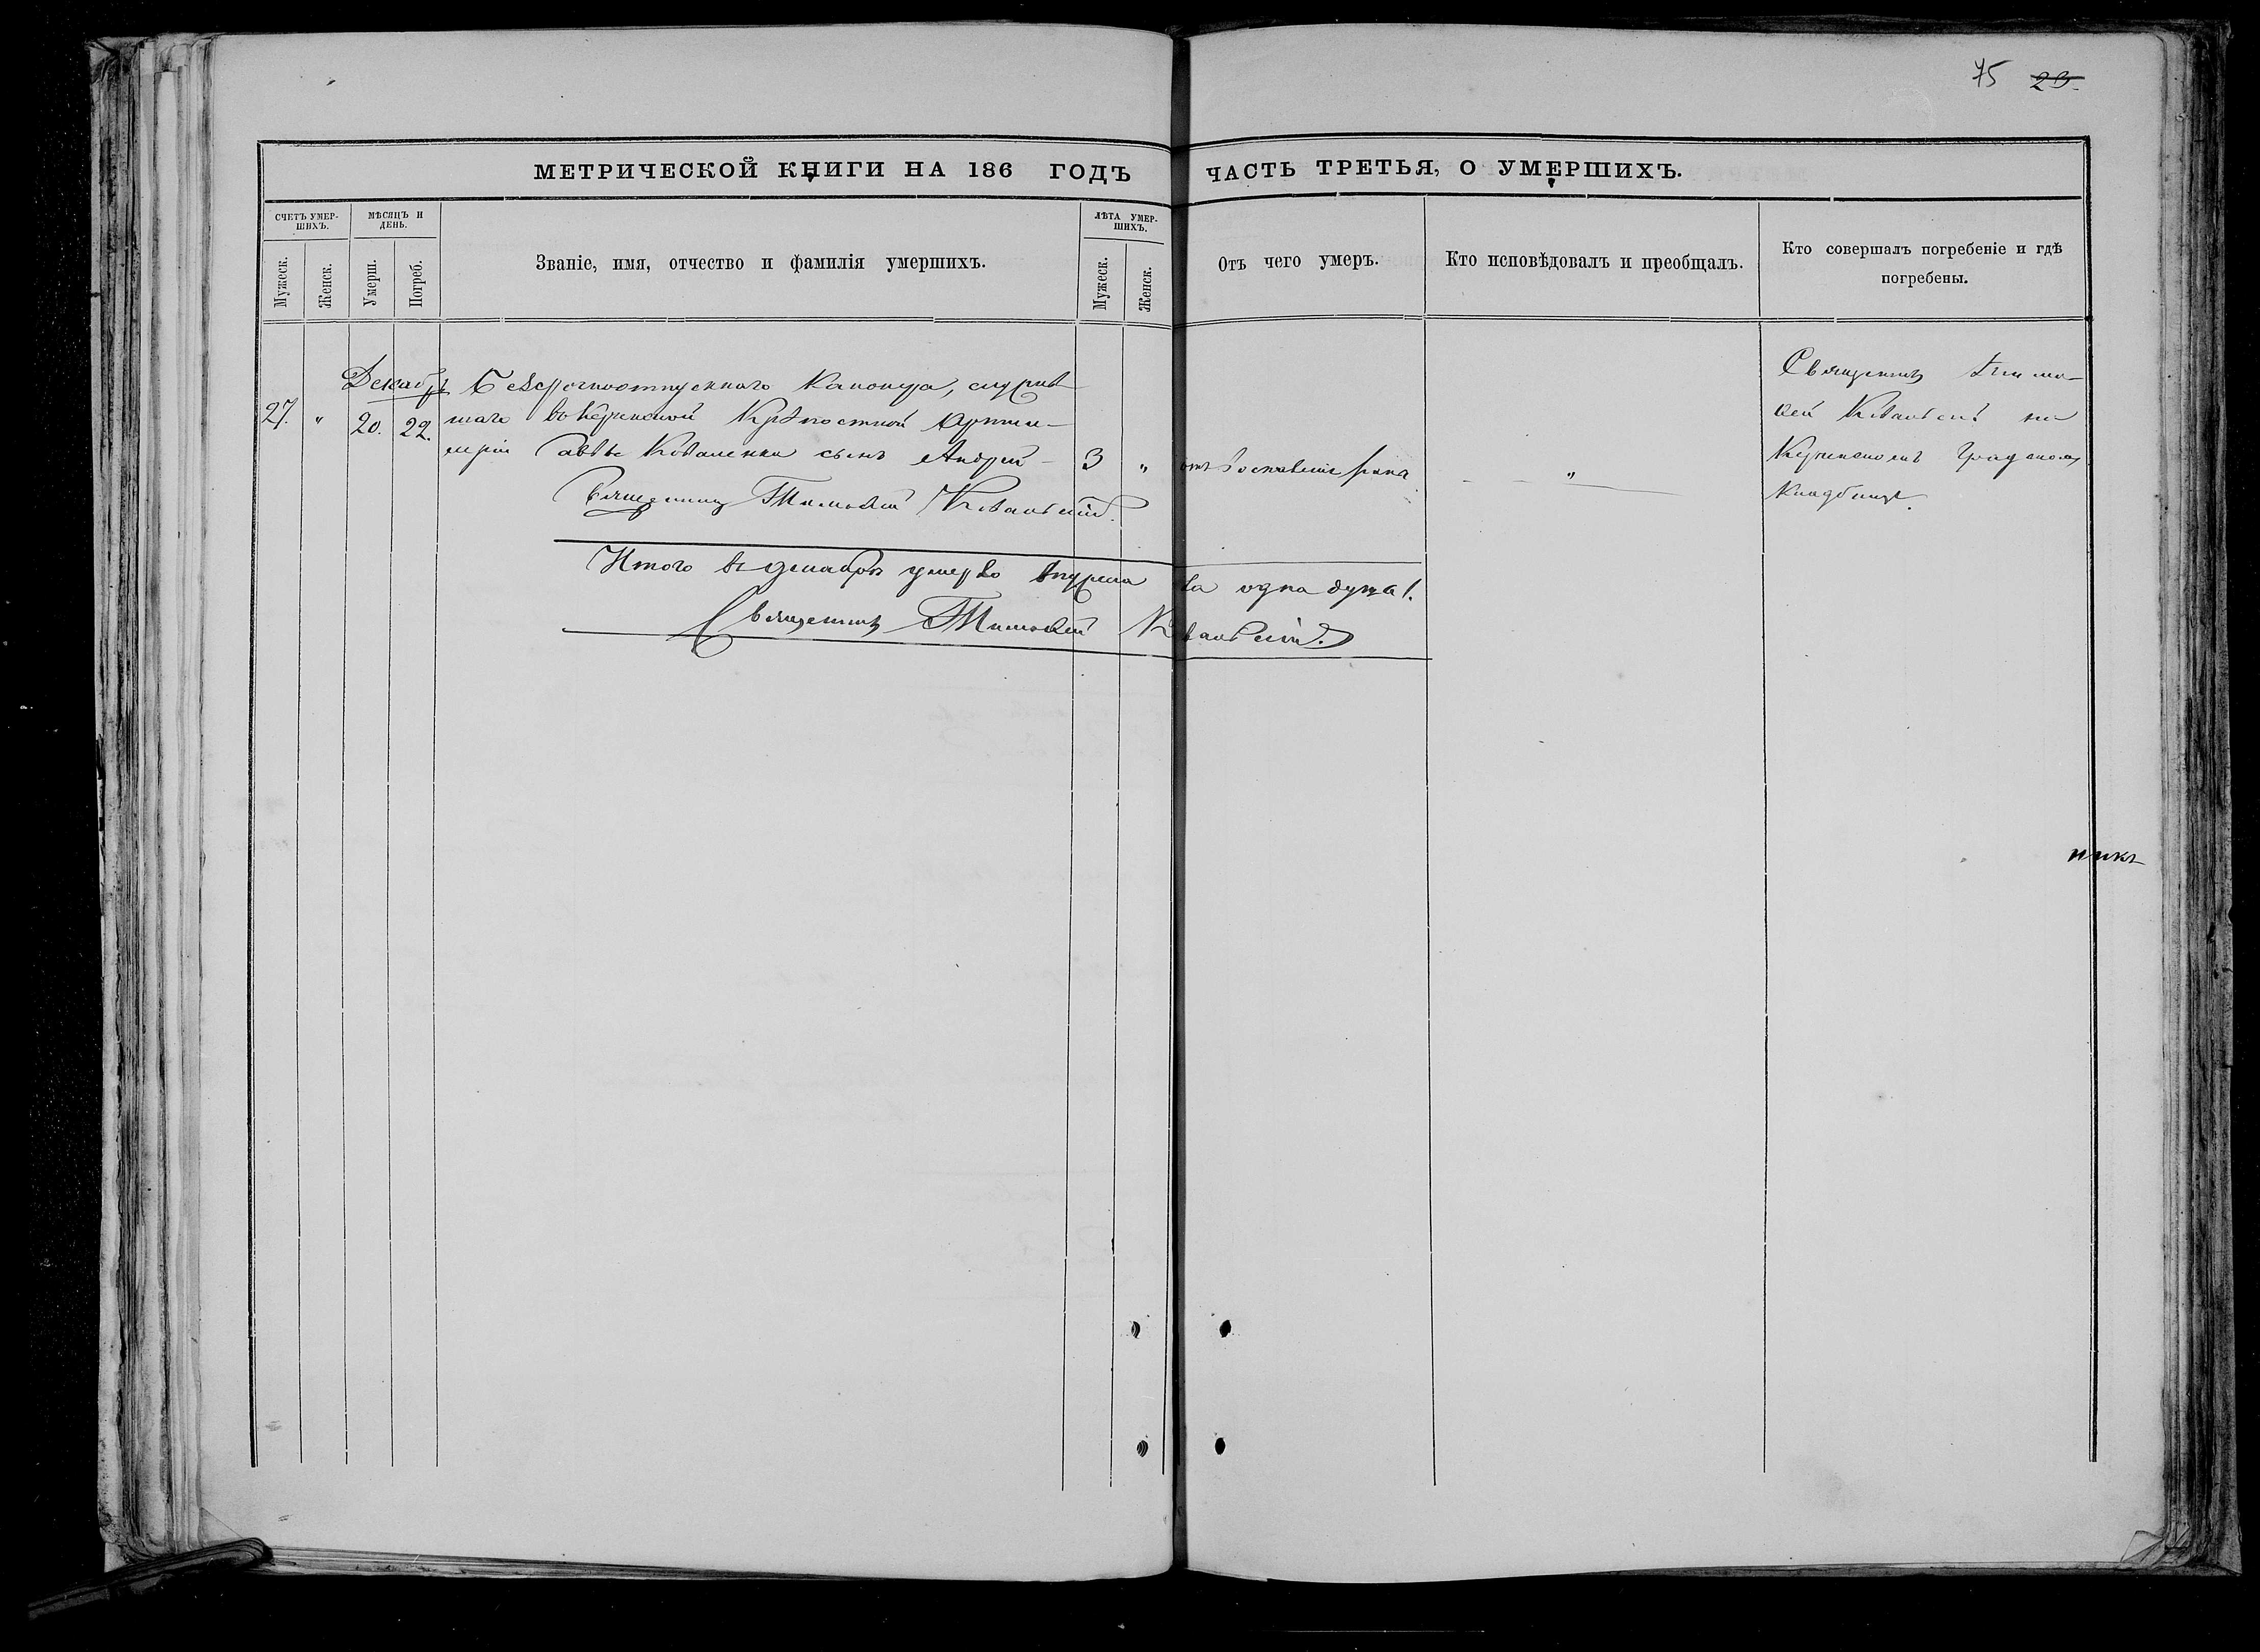 75 29.
МЕТРИЧЕСКОЙ КНИГИ НА 186 ГОДЪ ЧАСТЬ ТРЕТЬЯ, О УМЕРШИХЪ.
СЧЕТЪ УМЕР-
ШИХЪ.
МѢСЯЦЪ И
ДЕНЬ.
Мужеск.
Женск.
Умерш.
Погреб.
Званіе, имя, отчество и фамилія умершихъ.
ЛѢТА УМЕР-
ШИХЪ.
Мужеск.
Женск.
Отъ чего умеръ.
Кто исповѣдовалъ и преобщалъ.
Кто совершалъ погребеніе и гдѣ
погребены.
Декабрь
27. " 20. 22.
Безсрочноотпускнаго Канонера, служив
шаго въ Керченской Крѣпостной Артил-
леріи Саввы Коваленки сынъ Андрей
3 "
отъ воспаленія
"
Священникъ Тимофей Ковальскій.
Священникъ Тимо-
фей Ковальскій на
Керченскомъ Градскомъ
Кладбищѣ.
Итого въ декабрѣ умерло мужеска пола одна душа 1.
Священникъ Тимофей Ковальскій.
никъ